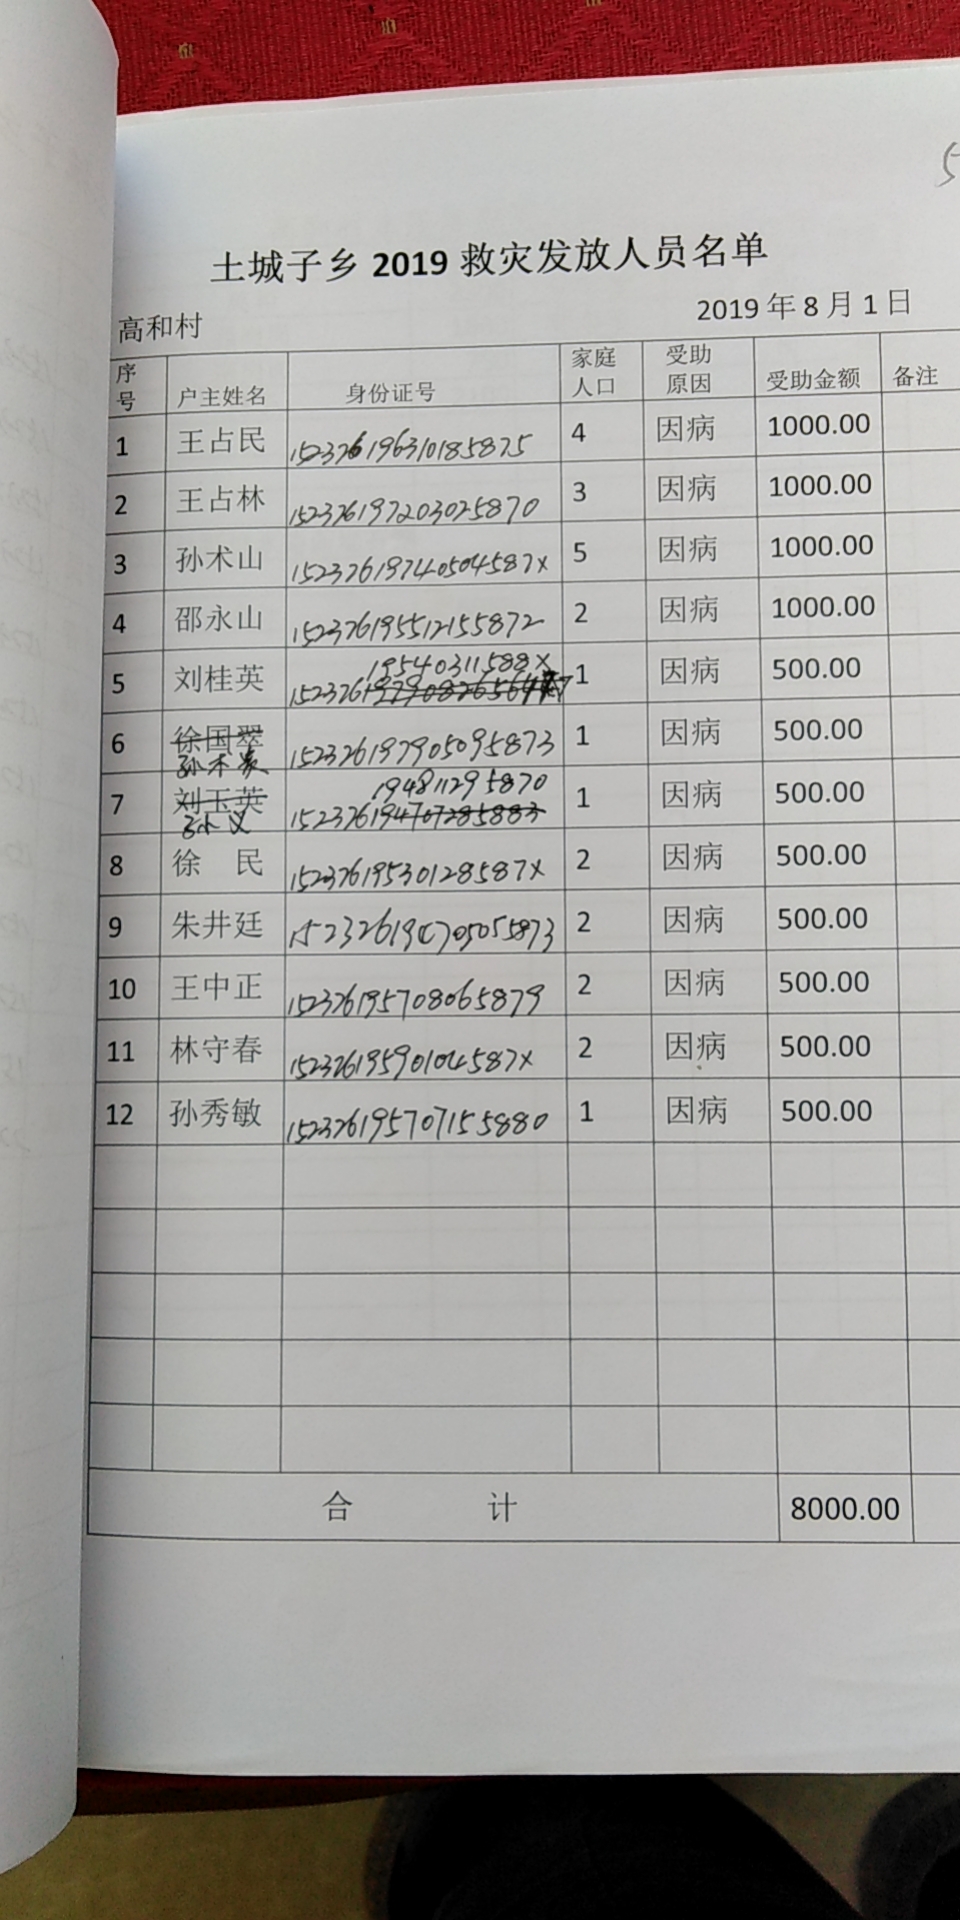 5
土城子乡 2019 救灾发放人员名单
高和村 2019 年 8 月 1 日
序号 户主姓名 身份证号 家庭人口 受助原因 受助金额 备注
1 王占民 152326196310185875 4 因病 1000.00
2 王占林 152326197203025870 3 因病 1000.00
3 孙术山 15232619740504587X 5 因病 1000.00
4 邵永山 152326195512155872 2 因病 1000.00
19540311588X
5 刘桂英 152326 1 因病 500.00
6 徐国翠 152326197905095873 1 因病 500.00
孙术
194811295870
7 刘玉英 152326194707285883 1 因病 500.00
义
8 徐 民 15232619530128587X 2 因病 500.00
9 朱井廷 2 因病 500.00
10 王中正 152326195708065879 2 因病 500.00
11 林守春 15232619590104587X 2 因病 500.00
12 孙秀敏 152326195707155880 1 因病 500.00
合 计 8000.00